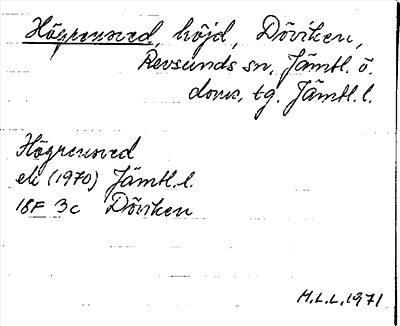 Högrensved, höjd, Döviken,
Revsunds sn, Jämtl. ö.
doms. tg. Jämtl. l.
Högrensved
ek (1970) Jämtl. l.
18F 3c Döviken
M.L.L. 1971